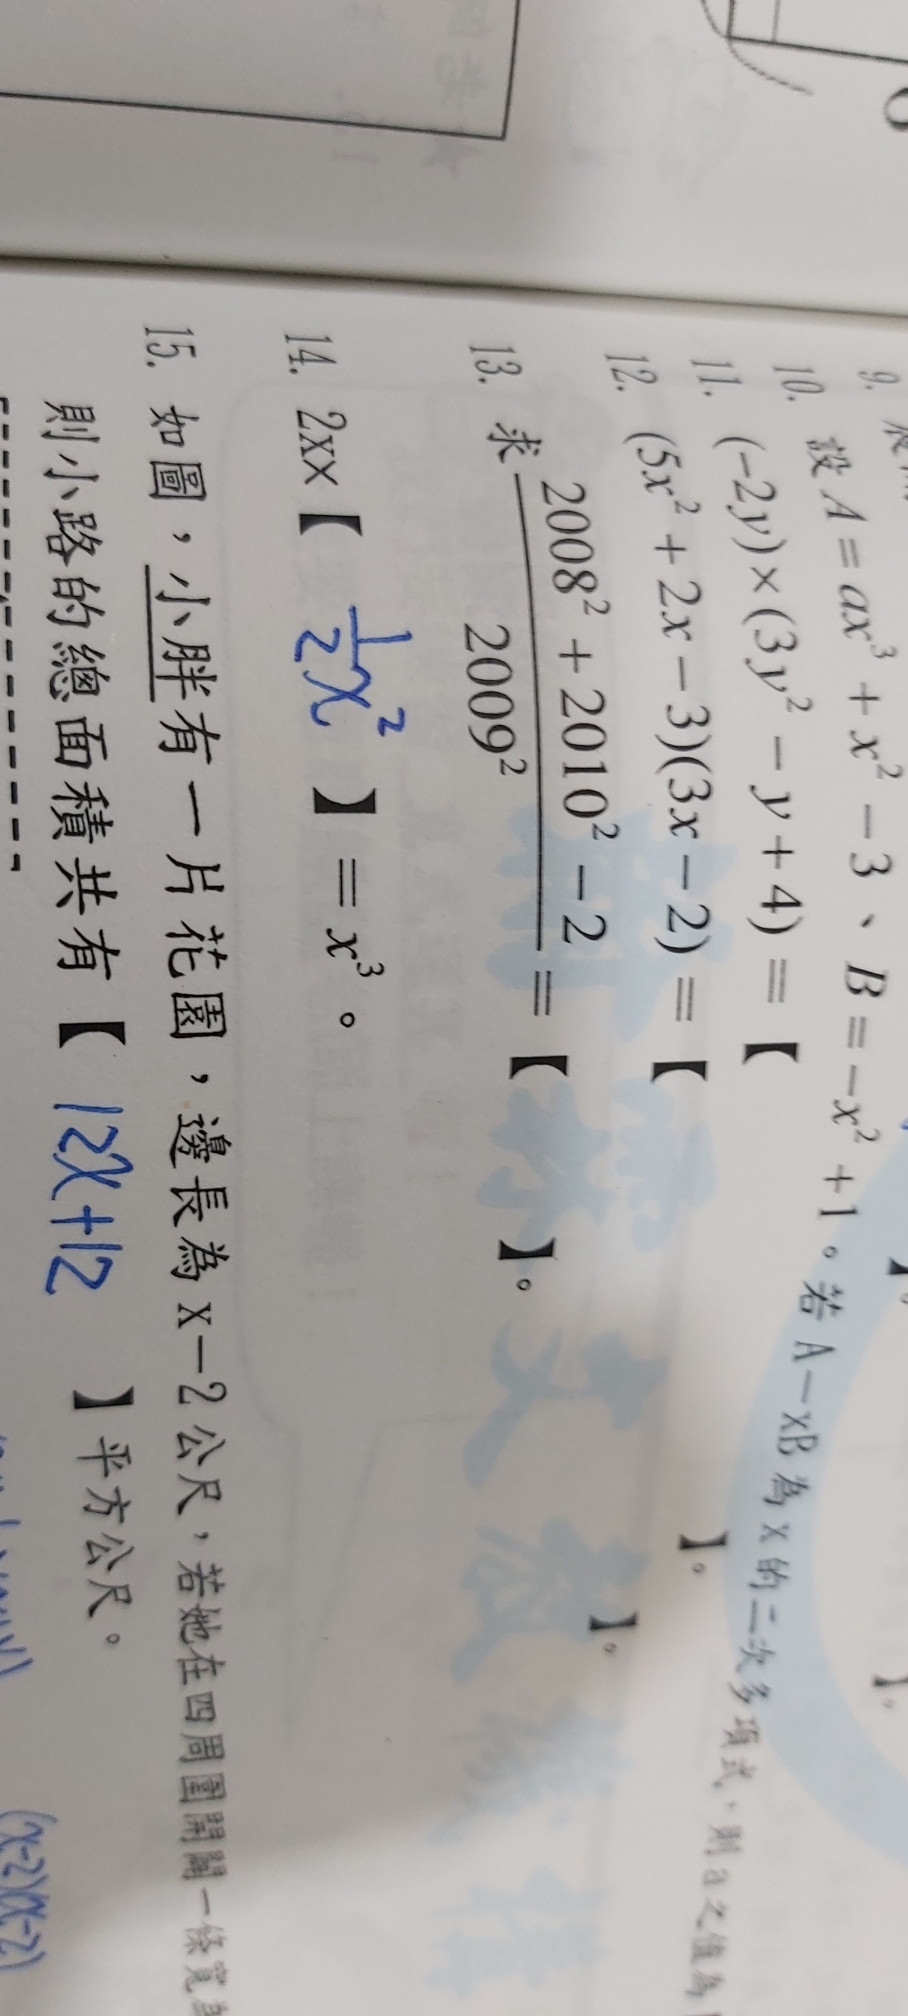 9.
10. 設 A = ax³ + x² − 3、B = −x² + 1。若 A − xB 為 x 的二次多項式，則 a 之值為
11. (−2y) × (3y² − y + 4) = 【 】。
12. (5x² + 2x − 3)(3x − 2) = 【 】。
13. 求 (2008² + 2010² − 2) / 2009² = 【 】。
14. 2x× 【 1/2 x² 】 = x³。
15. 如圖，小胖有一片花園，邊長為 x－2 公尺，若她在四周圍開闢一條寬為
則小路的總面積共有【 12x+12 】平方公尺。
(x-2)(x-2)